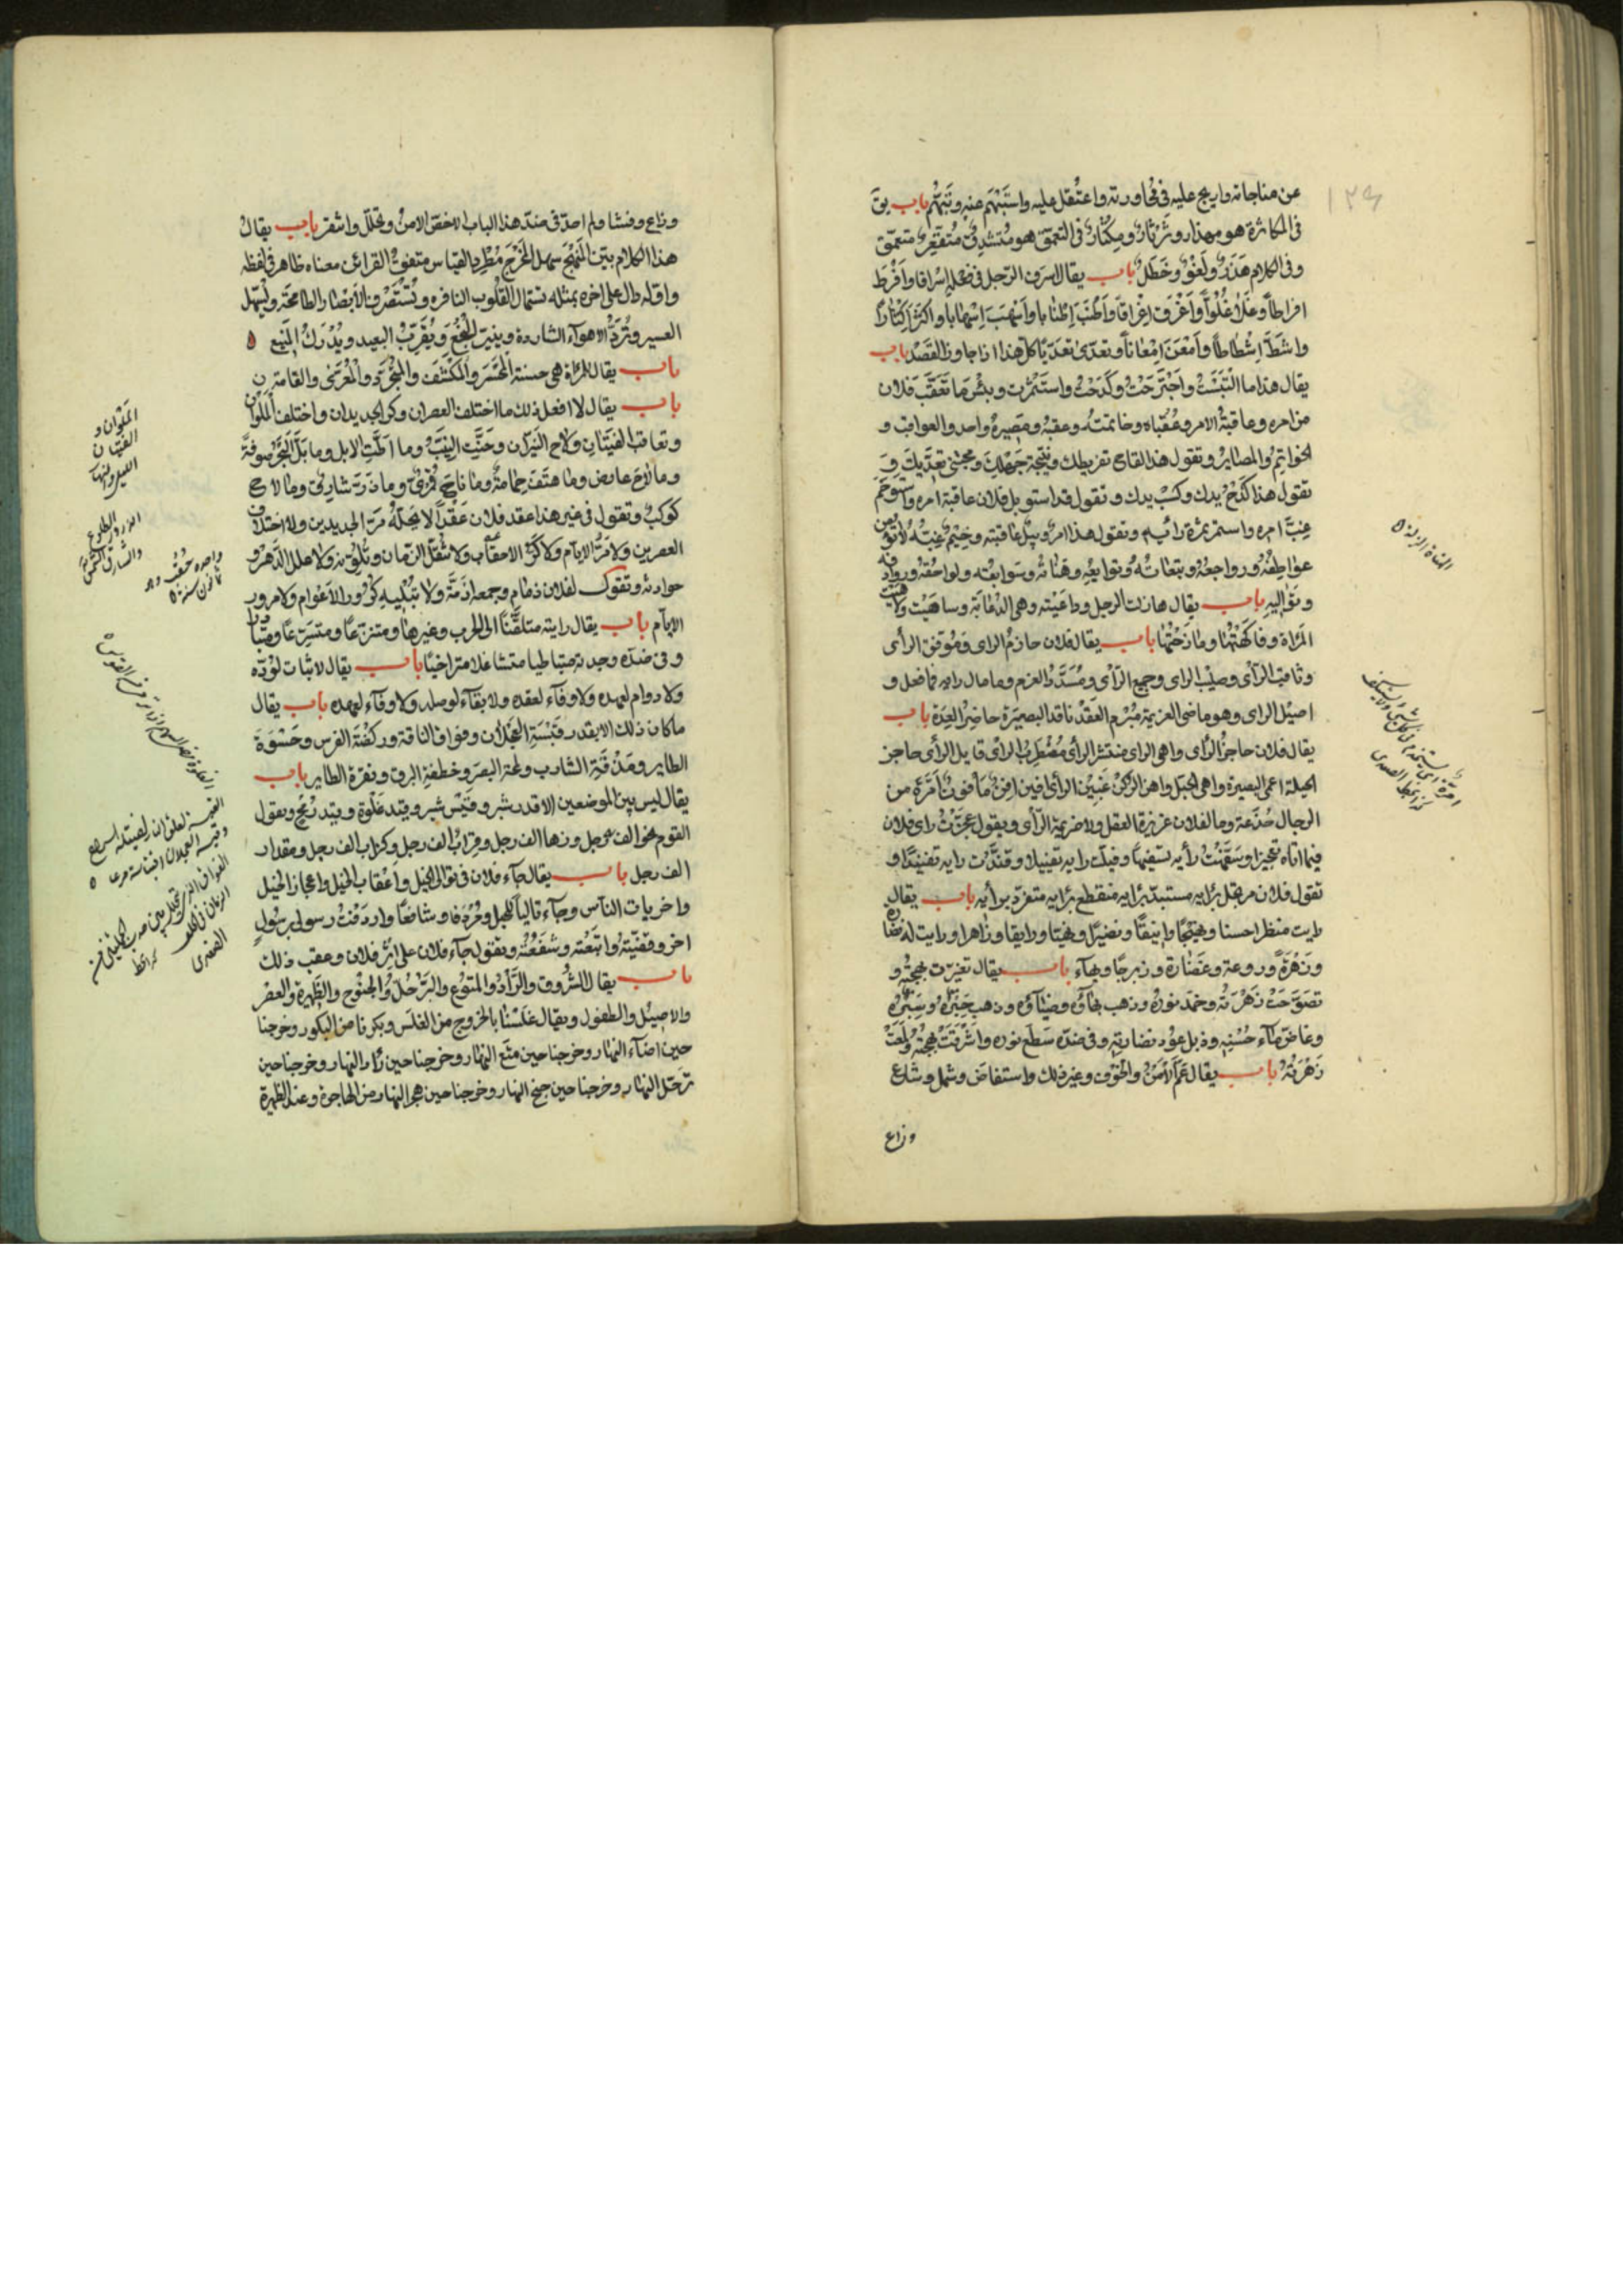 عن مناجاته وارتج عليه في محاورته واعتقل عليه واستبهم عنه وتبهم باب يق
في المكاثرة هو مهذار وثرثار ومكثار في التعمق هو متشدق متقعر متعمق
وفي الكلام هذر ولغو وخطل باب يقال اسرف الرجل في فعله اسرافا وافرط
افراطا وغلا غلوا واغرق اغراقا واطنب اطنابا واسهب اسهابا واكثر اكثارا
واشط اشطاطا وامعن امعانا وتعدى تعديا كل هذا اذا جاوز القصد باب
يقال هذا ما اكتسبت واجترحت وكدحت واستثمرت وبئس ما تعقب فلان
من امره وعاقبة الامر وعقباه وخاتمته وعقبه ومصيره واحد والعواقب و
الخواتم والمصاير وتقول هذا لقاح تفريطك ونتيجة جهلك ومجتنى تعديك و
تقول هذا كدح يدك وكسب يدك وتقول قد استوبل فلان عاقبة امره واستوخم
غب امره واستمر ثمرة رأيه وتقول هذا امر وبيل عاقبته وخيم غبه لا تؤمن
عواطفه ورواجعه وتبعاته وتوابعه وهناته وسوابقه ولواحقه وروادفه
وتواليه باب يقال هازلت الرجل وداعبته وهي الدعابة وساهيت ولاهيت
المرأة وفاكهتها ومازحتها باب يقال فلان حازم الراى وموفق الرأى
وثاقب الرأى وصليب الراى وجميع الرأى ومسدد العزم وما مال رايه فما فعل و
اصيل الراى وهو ماضى العزيمة مبرم العقد ناقد البصيرة حاضر العدة باب
يقال فلان عاجز الرأى واهى الراى منتشر الرأى مضطرب الراى قايل الرأى عاجز
الحيلة اعمى البصيرة واهى الحبل واهن الركن غبين الرأى افين افن مأفون امرة من
الرجال خدعة وما لفلان غزيرة العقل ولا ضريمة الرأى ويقول عجزت راى فلان
فيما اتاه تعجيزا وسفهت رأيه تسفيها وفيلت رايه تفييلا وفندت رايه تفنيدا و
تقول فلان مرتجل برايه مستبد برايه منقطع برايه متفرد برأيه باب يقال
رايت منظرا حسنا وبهيجا وانيقا ونضيرا وبهيا ورايقا وزاهرا ورايت له نضارة
وزهرة وروعة وغضارة وزبرجا وبهاء باب يقال تغيرت بهجته و
تصوحت زهرته وخمد نوره وذهب بهاؤه وضياؤه وذهب حبره وسبره
وغاض ماء حسنه وذبل عود نضارته وفي ضده سطع نوره واشرقت بهجته ولمعت
زهرته باب يقال عم الامن والخوف وغير ذلك واستفاض وشمل وشاع
وذاع
الهناة الزلة
وذاع وفشا ولم اجد في ضد هذا الباب الا خص الامن وتخلل واشقر باب يقال
هذا الكلام بين المنهج سهل المخرج مطرد القياس متفق القرائن معناه ظاهر في لفظه
واوله دال على اخره بمثله تستمال القلوب النافره وتستصرف الابصار الطامحة ويسهل
العسير وترد الاهواء الشاردة ويتيسر النجح ويقرب البعيد ويدرك المنيع
باب يقال للمرأة هي حسنة المحسر والمكشف والمجرد والمعرى والقامة
باب يقال لا افعل ذلك ما اختلف العصران وكر الجديدان واختلف الملوان
وتعاقب الفتيان ولاح النيران وحنت النيب وما اطت الابل وما بل البحر صوفة
وما لاح عارض وما هتفت حمامة وما ناح قمرى وما ذر شارق وما لاح
كوكب وتقول في غير هذا عقد فلان عقدا لا يحله مر الجديدين ولا اختلاف
العصرين ولا مر الايام ولا كر الاحقاب ولا تنقل الزمان وتلونه ولا علل الدهر و
حوادثه وتقول لفلان ذمام وجمعه اذمة ولا تبليه كرور الاعوام ولا مرور
الايام باب يقال رايته متلففا الى الحرب وغيرها ومتنزعا ومتسرعا ومتبادرا
وفي ضده وجدته متباطيا متثاقلا متراخيا باب يقال لا ثبات لوده
ولا دوام لعهده ولا وفاء لعقده ولا بقاء لوصله ولا وفاء لعهده باب يقال
ما كان ذلك الا بقدر قبسة العجلان وفواق الناقة وركضة الفرس وحسوة
الطاير ومذقة الشارب ولمحة البصر وخطفة البرق ونقرة الطاير باب
يقال ليس بين الموضعين الا قدر شبر وقيس شبر وقيد غلوة وقيد رمح وتقول
القوم نحو الف رجل وزها الف رجل وقراب الف رجل وكراب الف رجل ومقدار
الف رجل باب يقال جاء فلان في توالى الخيل واعقاب الخيل واعجاز الخيل
واخريات الناس وجاء تاليا للخيل ومردفا وشافعا واردفت رسولى برسول
اخر وقفيته واتبعته وشفعته وتقول جاء فلان على اثر فلان وعقب ذلك
باب يقال الشروق والراد والمتوع والترحل والجنوح والظهيرة والعصر
والاصيل والطفول ويقال غلسنا بالخروج من الغلس وبكرنا من البكور وخرجنا
حين اضاء النهار وخرجنا حين متع النهار وخرجنا حين راد النهار وخرجنا حين
ترحل النهار وخرجنا حين جنح النهار وخرجنا حين هجر النهار من الهاجرة وعند الظهيرة
الملوان و
الفتيان
الليل والنهار
الذرور الطلوع
والشارق الشمس
واحده حقب وهو
ثمانون سنة